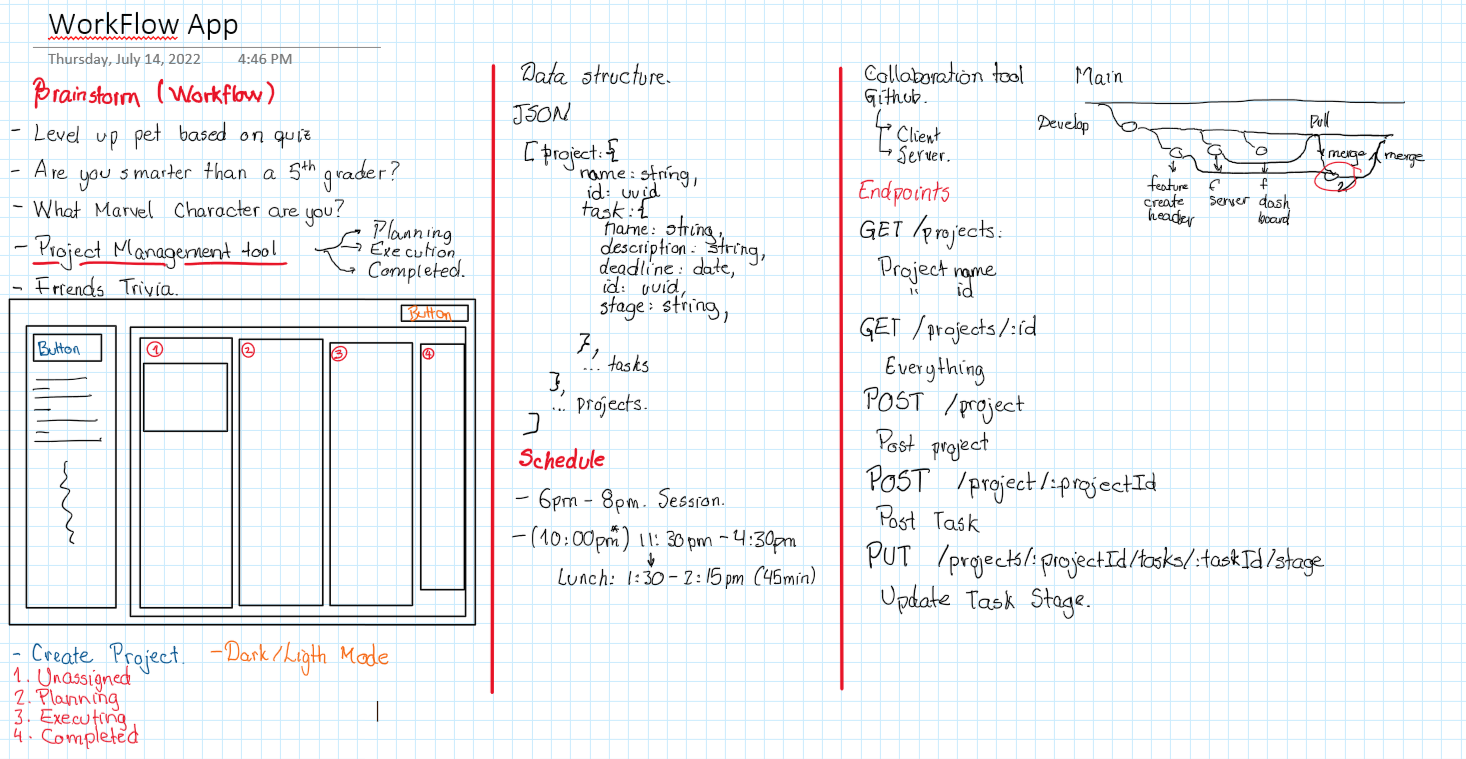 WorkFlow App
Thursday, July 14, 2022 4:46 PM
Brainstorm (Workflow)
- Level up pet based on quiz
- Are you smarter than a 5th grader?
- What Marvel Character are you?
- Project Management tool
Planning
Execution
Completed.
- Friends Trivia.
Button
Button
1
2
3
4
- Create Project.
- Dark/Ligth Mode
1. Unassigned
2. Planning
3. Executing
4. Completed
Data structure.
JSON
[ project: {
name: string,
id: uuid
task: {
name: string,
description: string,
deadline: date,
id: uuid,
stage: string,
},
... tasks
},
... projects.
]
Schedule
- 6pm - 8pm. Session.
- (10:00pm*) 11:30pm - 4:30pm
Lunch: 1:30 - 2:15pm (45min)
Collaboration tool
Github.
Client
Server.
Main
Develop
Pull
merge
merge
2
feature
create
header
f
server
f
dash
board
Endpoints
GET /projects:
Project name
" id
GET /projects/:id
Everything
POST /project
Post project
POST /project/:projectId
Post Task
PUT /projects/:projectId/tasks/:taskId/stage
Update Task Stage.